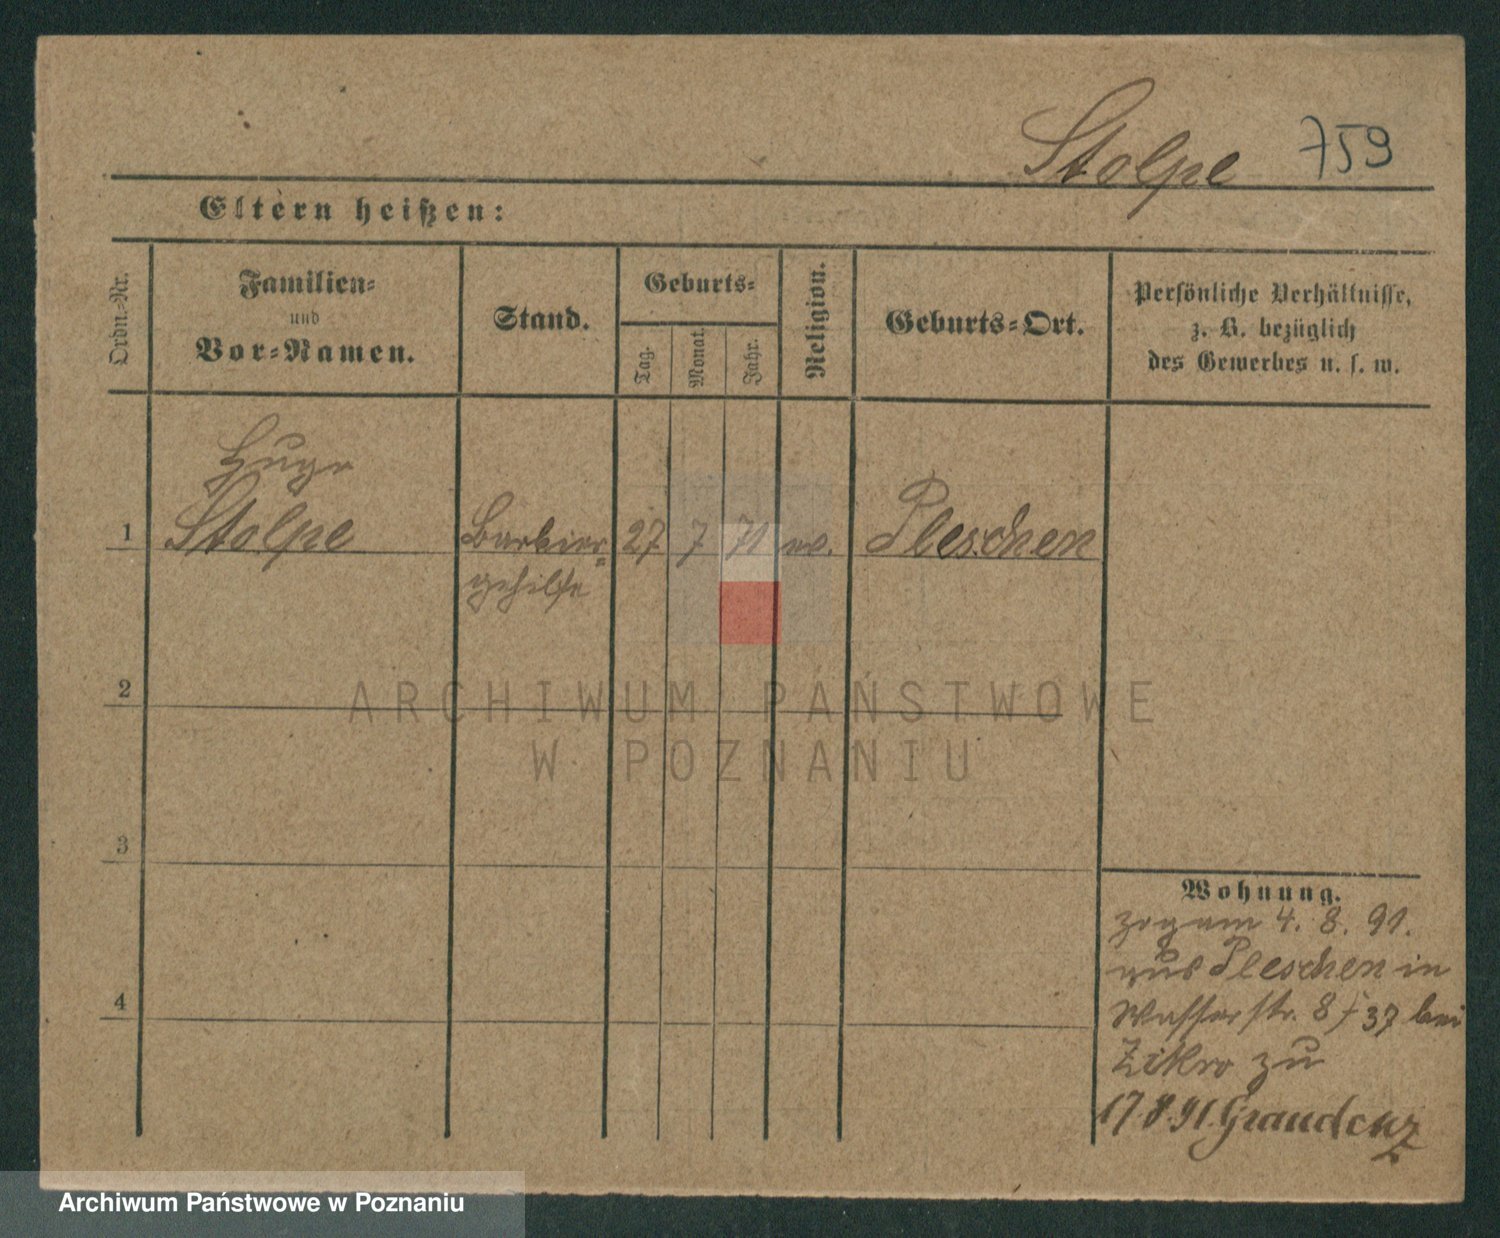 Stolpe 759
Eltern heißen:
Ordn.-Nr.
Familien-
und
Vor-Namen.
Stand.
Geburts-
Tag.
Monat.
Jahr.
Religion.
Geburts-Ort.
Persönliche Verhältnisse,
z. B. bezüglich
des Gewerbes u. s. w.
Hugo
1 Stolpe Barbier- 27 7 71 ev. Pleschen
gehilfe
2
3
4
Wohnung.
zog am 4. 8. 91.
aus Pleschen in
Wasserstr. 8/37 bei
zu
17.8.91. Graudenz
ARCHIWUM PAŃSTWOWE
W POZNANIU
Archiwum Państwowe w Poznaniu